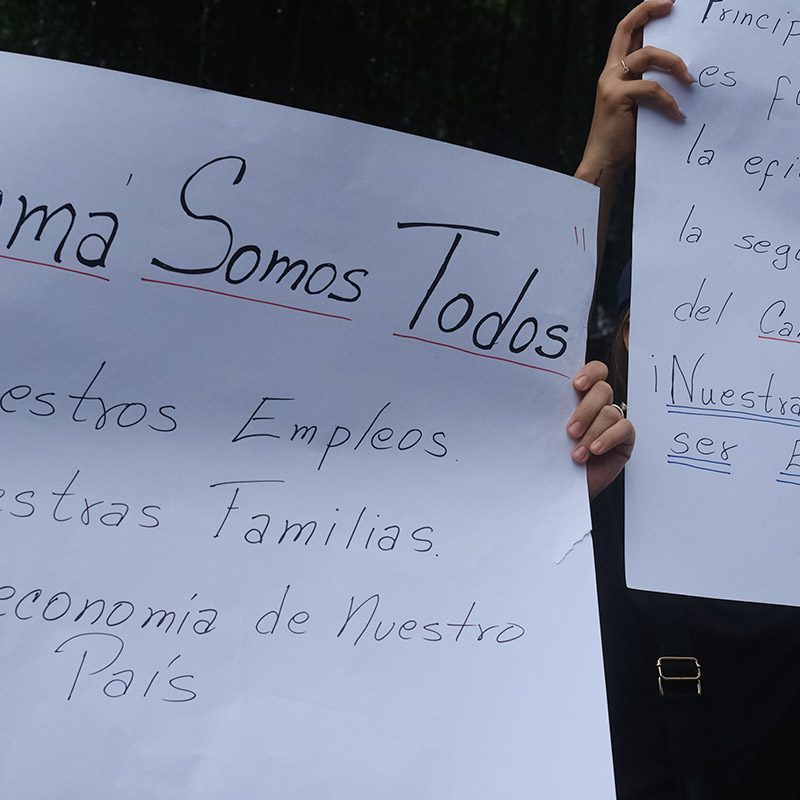 amá Somos Todos "
estros Empleos.
estras Familias.
economía de Nuestro
País
Princip
es fu
la efi
la segu
del Ca
¡Nuestra
ser E